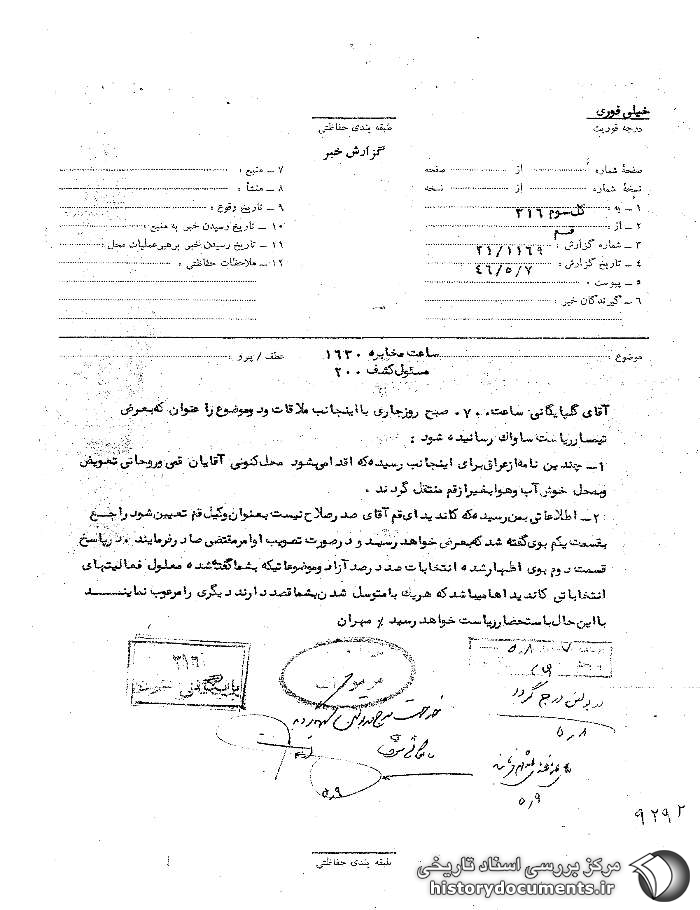 خیلی فوری
درجه فوریت
طبقه بندی حفاظتی
گزارش خبر
صفحهٔ شماره از صفحه
نسخهٔ شماره از نسخه
۱ ـ به : کل سوم ۳۱۶
۲ ـ از : قم
۳ ـ شماره گزارش : ۲۱/۱۱۶۹
۴ ـ تاریخ گزارش : ۴۶/۵/۷
۵ ـ پیوست :
۶ ـ گیرندگان خبر :
۷ ـ منبع :
۸ ـ منشأ :
۹ ـ تاریخ وقوع :
۱۰ ـ تاریخ رسیدن خبر به منبع :
۱۱ ـ تاریخ رسیدن خبر برهبر عملیات محل :
۱۲ ـ ملاحظات حفاظتی :
موضوع : ساعت مخابره ۱۶۳۰ عطف / پیرو :
مسئول کشف ۲۰۰
آقای گلپایگانی ساعت ۰۷۰۰ صبح روز جاری با اینجانب ملاقات و دو موضوع را عنوان که بعرض
تیمسار ریاست ساواک رسانیده شود :
۱ـ چندین نامه از عراق برای اینجانب رسیده که اقدامی بشود محل کنونی آقایان قمی و روحانی تعویض
و بمحل خوش آب و هوا بغیر از قم منتقل گردند .
۲ـ اطلاعاتی بمن رسیده که کاندیدای قم آقای صدر صلاح نیست بعنوان وکیل قم تعیین شود راجع
بقسمت یکم بوی گفته شد که بعرض خواهد رسید و در صورت تصویب اوامر مقتضی صادر فرمایند در پاسخ
قسمت دوم بوی اظهار شده انتخابات صد درصد آزاد و موضوعاتیکه بشما گفته شده معلول فعالیتهای
انتخاباتی کاندیداها میباشد که هر یک با متوسل شدن بشما قصد دارند دیگری را مرعوب نمایند
با این حال با ستحضار ریاست خواهد رسید % مهران
۳۱۶
بایگانی
۵ر۸
در بولتن درج گردد
۵ر۸
۵ر۹
۵ر۹
۹۲۹۲
طبقه بندی حفاظتی
مرکز بررسی اسناد تاریخی
historydocuments.ir